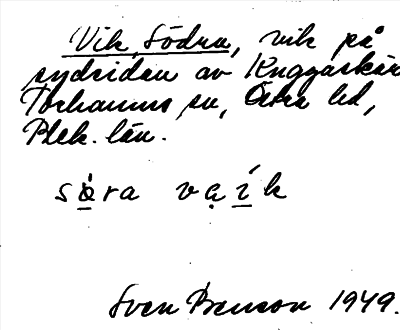 Vik, Södra, vik på
sydsidan av Knggaskär
Torhamns sn, Östra hd,
Blek. län.
sø̀ra vạík
Sven Benson 1949.